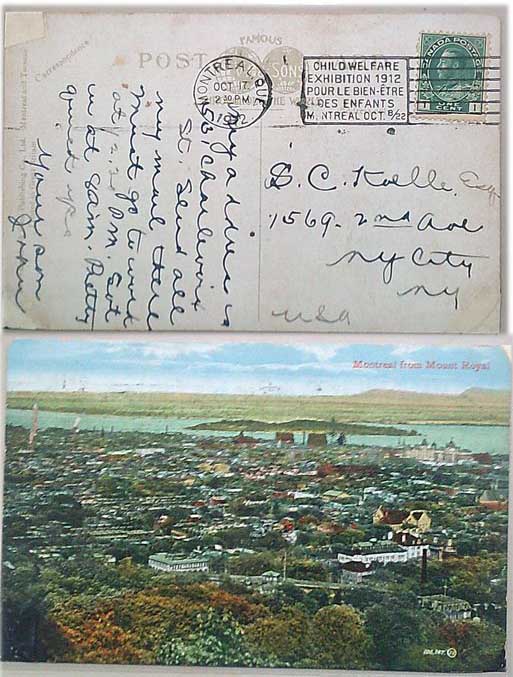 Correspondence.
POST
FAMOUS
SONS
THE WORLD
MONTREAL, QUE.
OCT 17
2 30 PM
1912
CHILD WELFARE
EXHIBITION 1912
POUR LE BIEN-ÊTRE
DES ENFANTS
MONTREAL OCT. 8/22
CANADA POSTAGE
1 CENT 1
My address is
53 Charlevoix
St. Send all
my mail there
must go to work
at 12.20 P.M. Got
in at 9am. Pretty
quiet up
Your son
John
S. C. Kolle Esq
1569-2nd Ave
NY City
NY
USA
Publishing Co., Ltd., Montreal and Toronto
Montreal from Mount Royal